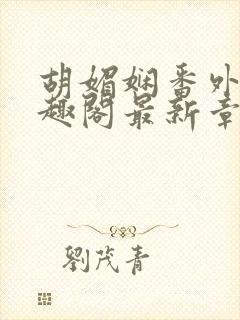 胡媚娴番外
趣阁最新章
劉茂青